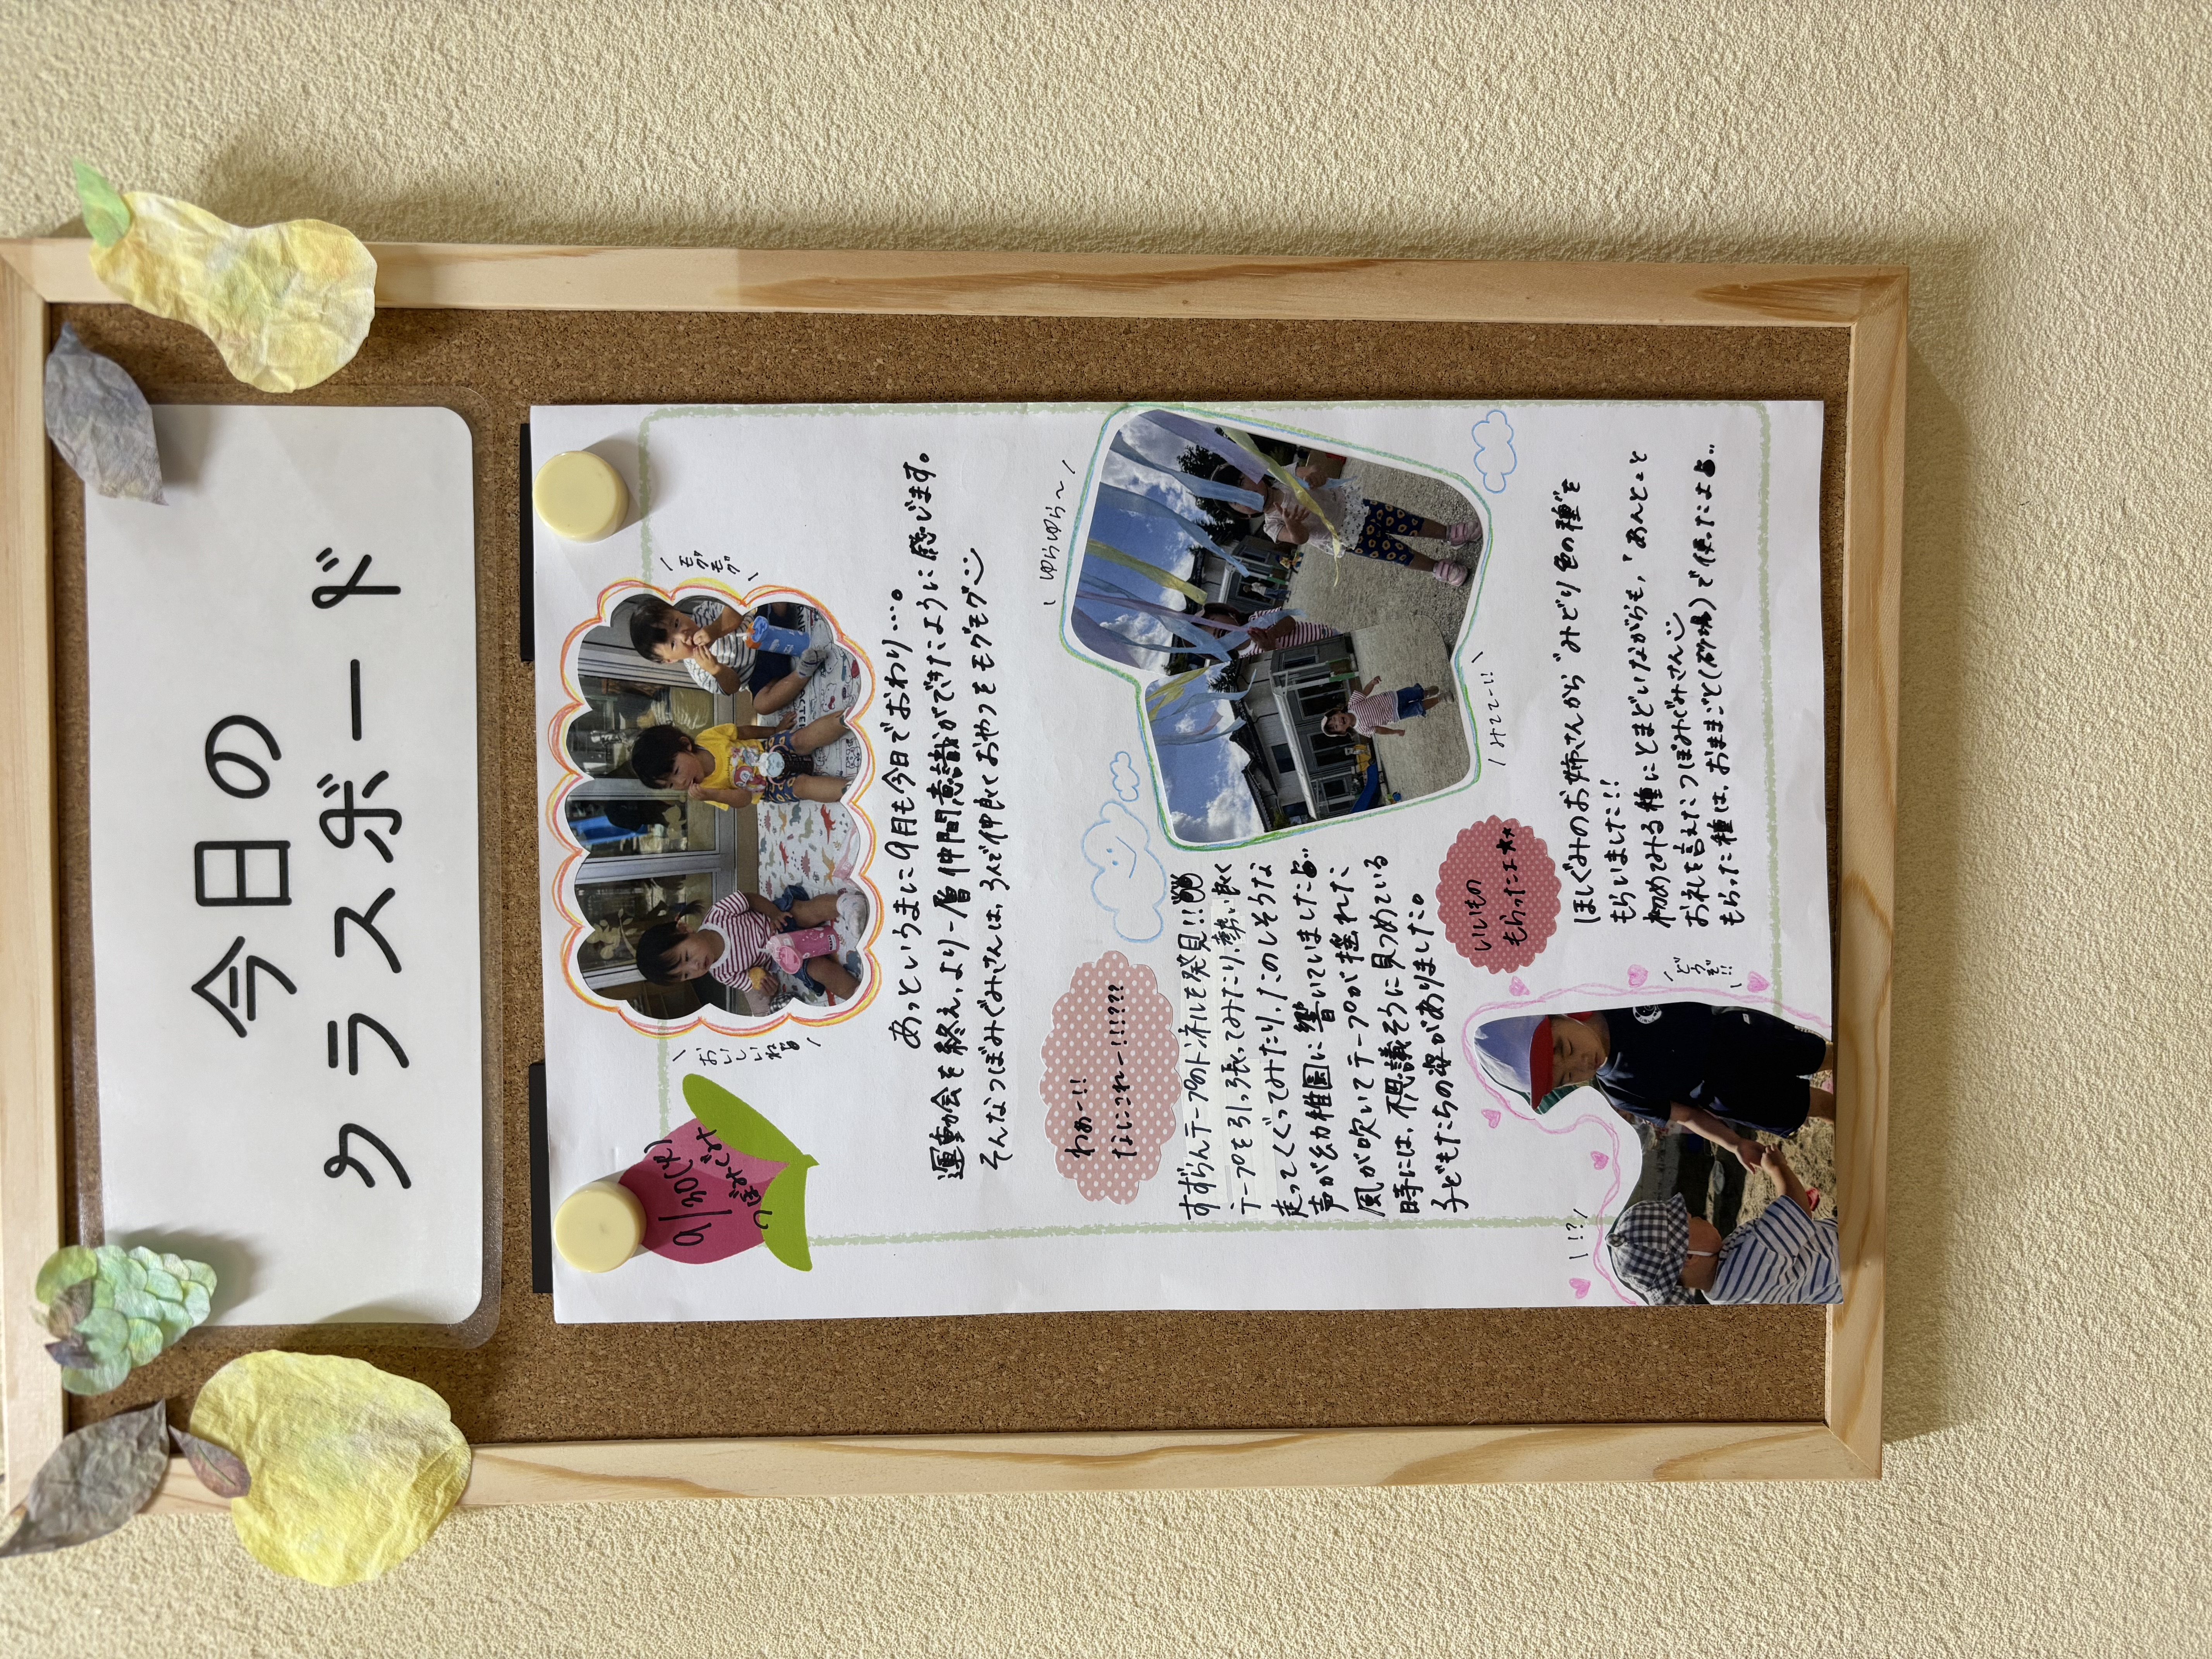 今日の
クラスボード
9/30(火)
つぼみぐみ
おいしいねぇ
モグモグ
あっというまに9月も今日でおわり…。
運動会を終え、より一層仲間意識ができたように感じます。
そんなつぼみぐみさんは、3人で仲良くおやつをモグモグ
わぁー!!
なにこれー!!!???
ゆらゆら〜
すずらんテープのトンネルを発見!!
テープを引っ張ってみたり、勢い良く
走ってくぐってみたり、たのしそうな
声が幼稚園に響いていました
風が吹いてテープが揺れた
時には、不思議そうに見つめている
子どもたちの姿がありました。
みててー!!
いいもの
もらったエ★★
ほしぐみのお姉さんから"みどり色の種"を
もらいました!!
初めてみる種にとまどいながらも、「あんとこと
お礼を言えたつぼみぐみさん
もらった種は、おままごと(砂場)で使ったよ
!?
どうぞ!!